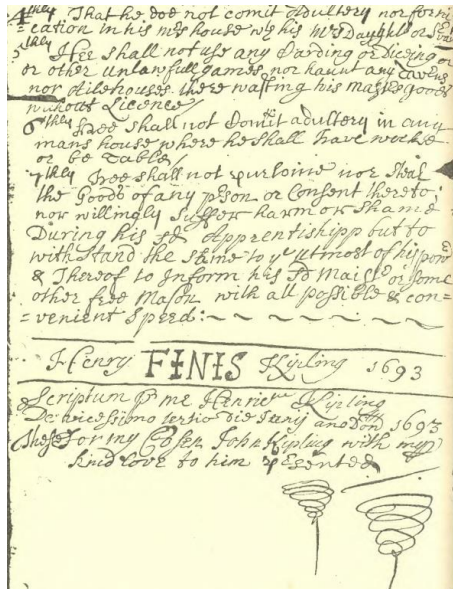 4thly That he doe not comit Adultery nor forni
=cation in his mrs house wth his Mrs Daughtr or Servt
5thly Hee shall not use any Carding or Diceing or
or other unlawfull games nor haunt any Taverns
nor Alehouses there wasting his masters Goods
without Licence
6thly Hee shall not Comitt adultery in any
mans house where he shall have worke
or be Tabled
7thly Hee shall not purloine nor Steal
the Goods of any pson or Consent thereto;
nor willingly Suffer harm or Shame
During his sd Apprentishipp but to
withstand the same to ye utmost of his power
& Thereof to Inform his sd Maistr or some
other free Mason with all possible & con=
=venient Speed:~
Henry FINIS Kipling 1693
Scriptum pr me Henric Kipling
tertio die anno Dom 1693
These For my Cosen John Kipling with my
kind Love to him psented